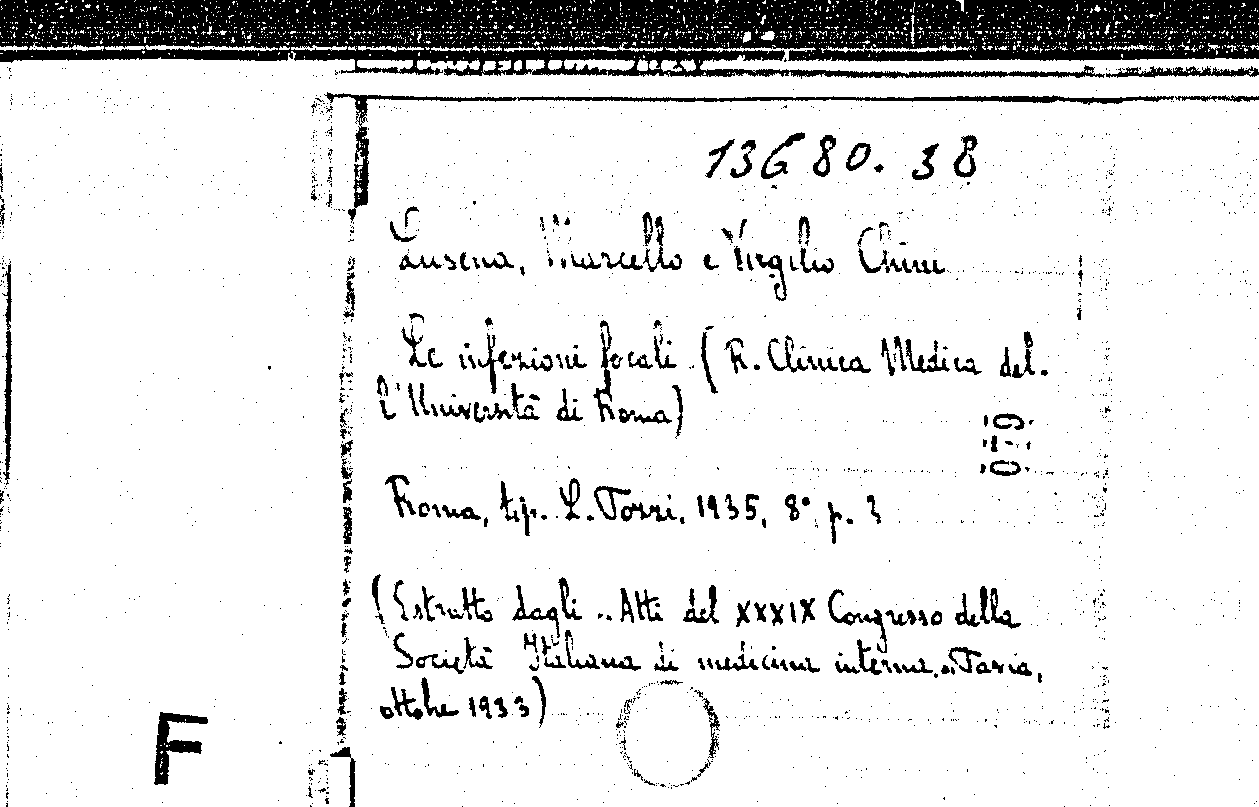 13680.38
Lusena, Marcello e Virgilio Chini
Le infezioni focali (R. Clinica Medica del-
l'Università di Roma)
079
Roma, tip. L. Pozzi, 1935, 8° p. 3
(Estratto dagli „Atti del XXXIX Congresso della
Società Italiana di medicina interna„ Pavia,
ottobre 1933)
F